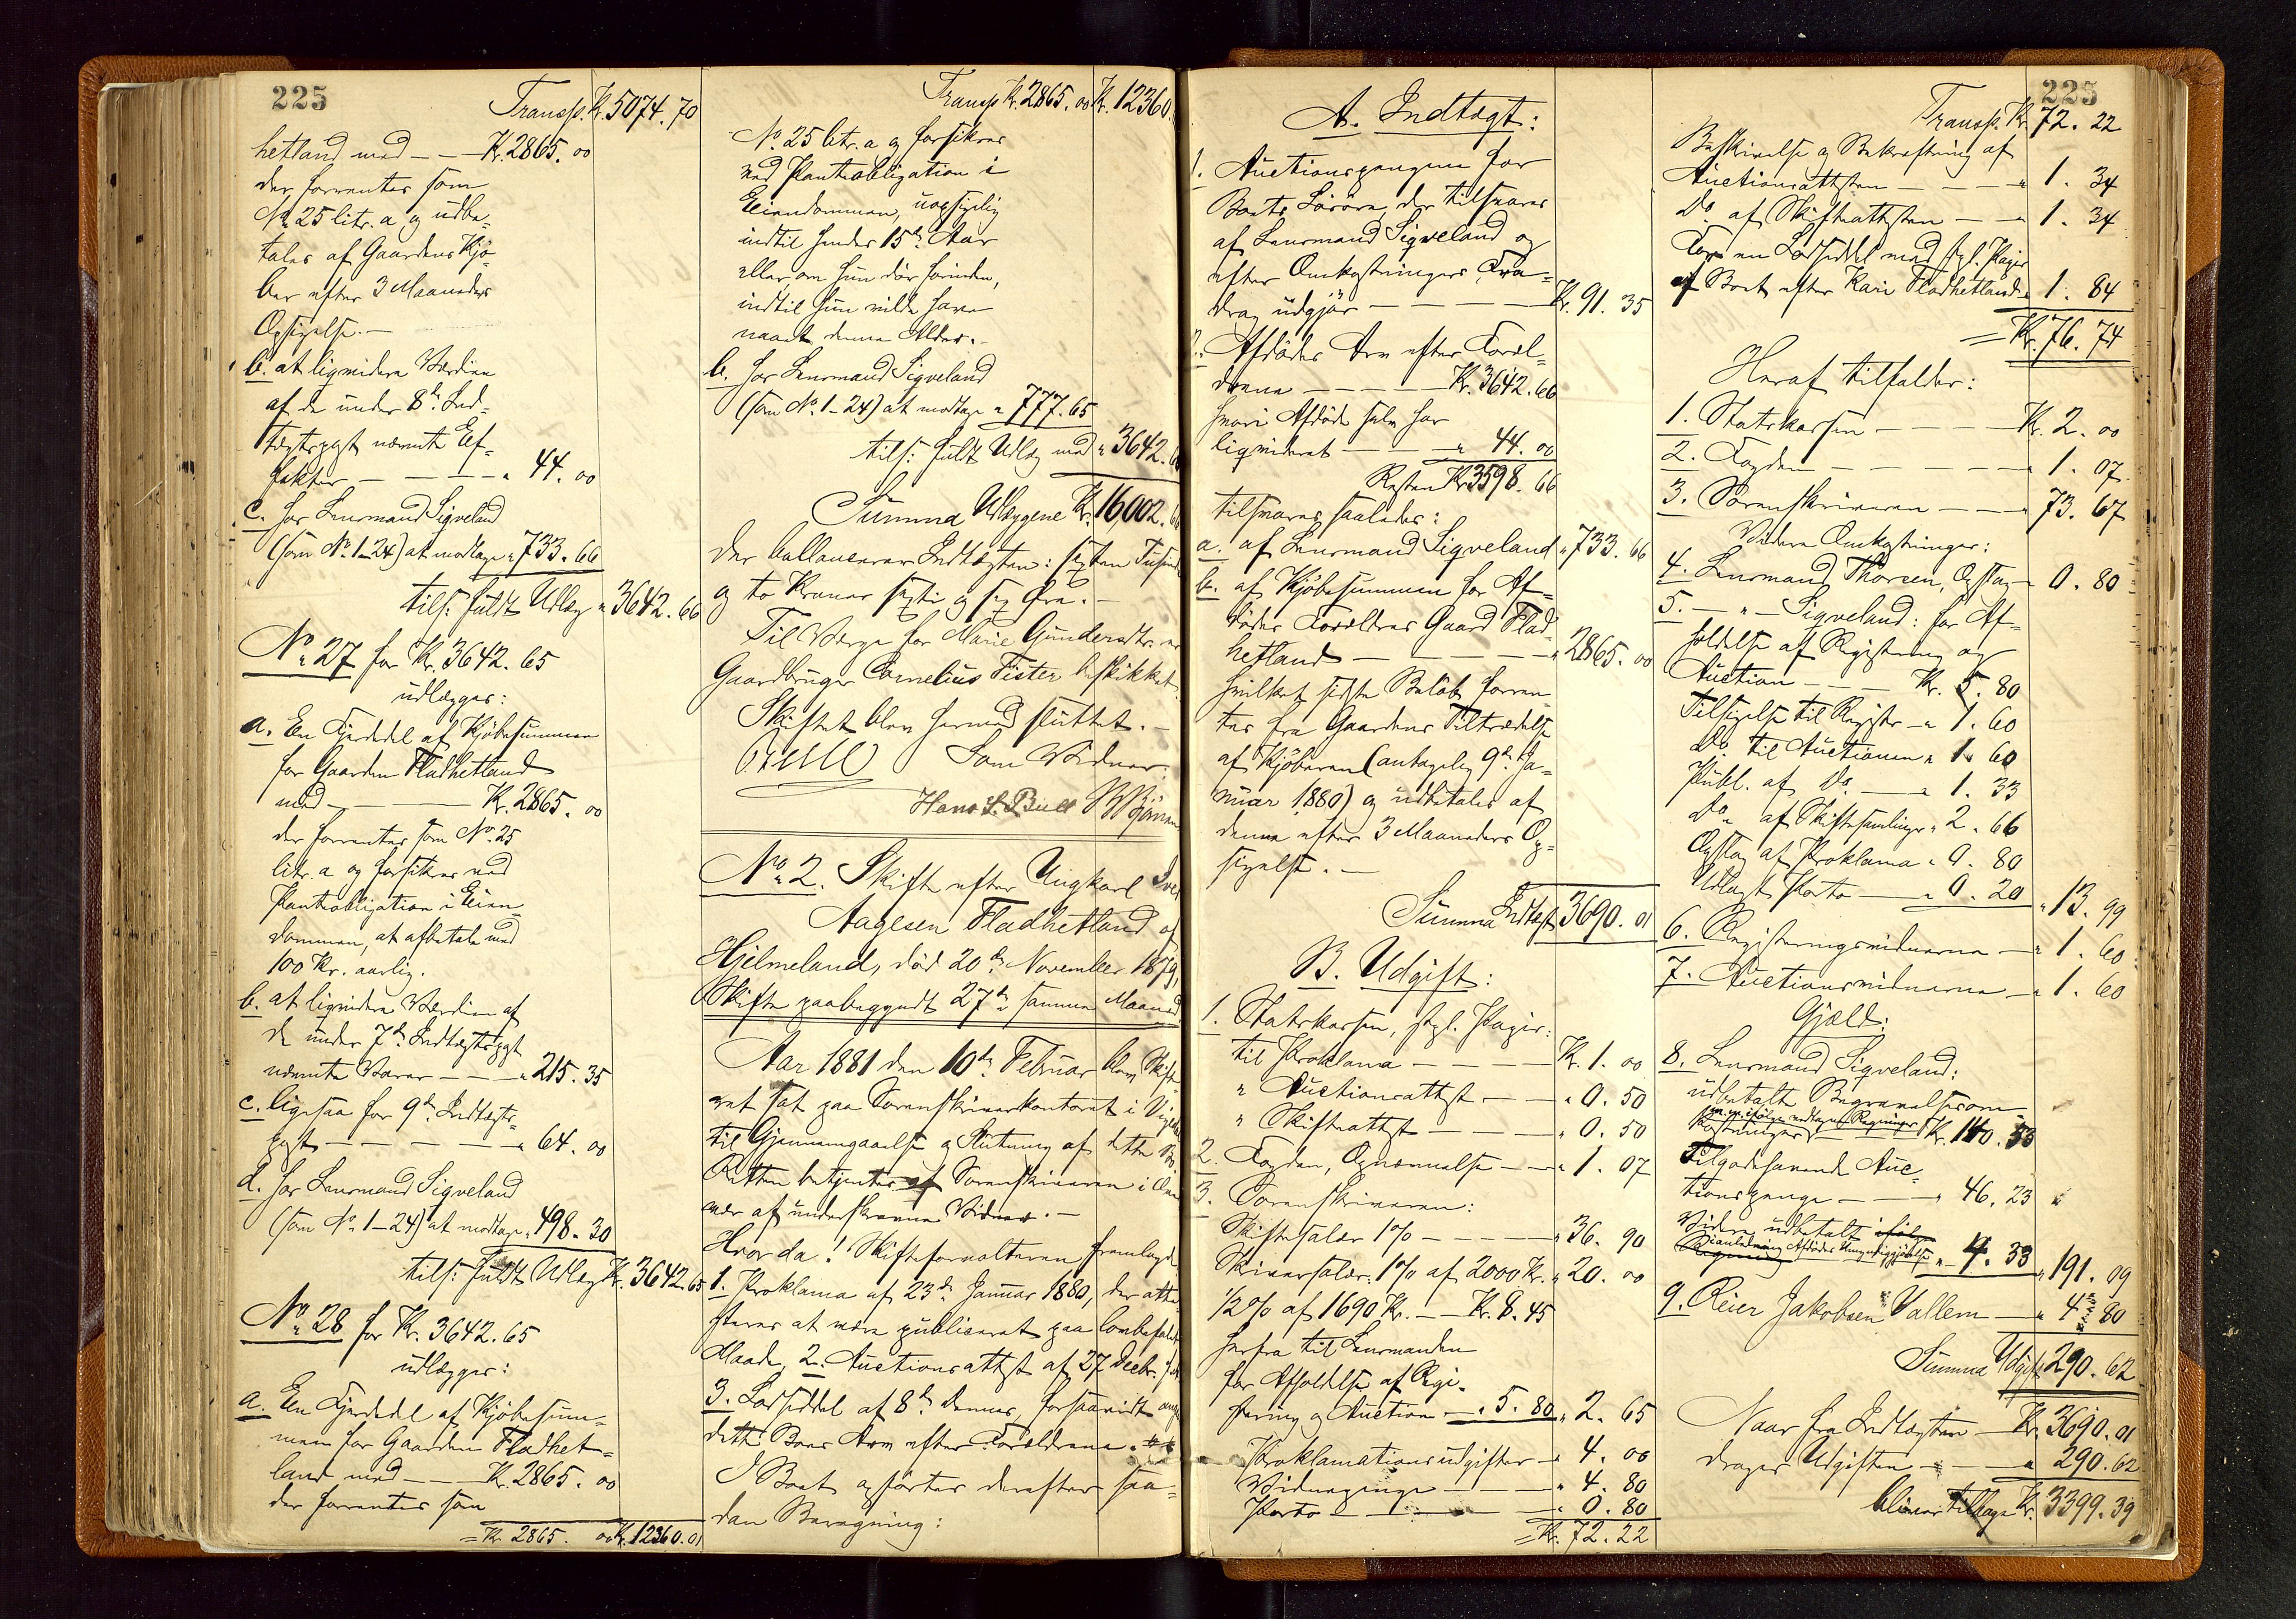 225
Transp. Kr. 5074. 70
hetland med — — Kr. 2865. 00
der forrentes som
No 25 litr. a og udbe-
tales af Gaardens Kjö-
ber efter 3 Maaneders
Opsigelse. —
b. at ligvidere Værdien
af de under 8de Ind-
tægtspost nævnte Ef-
fekter — — — — " 44. 00
c. hos Lensmand Sigveland
(som No 1-24) at modtage " 733. 66
tils: fuldt Udlæg " 3642. 66
No 27 for Kr. 3642. 65
udlægges:
a. En Fjerdedel af Kjöbesummen
for Gaarden Fladhetland
med — — — — Kr. 2865. 00
der forrentes som No 25
litr. a og forsikres ved
Panteobligation i Eien-
dommen, at afbetale med
100 Kr. aarlig.
b. at ligvidere Værdien af
de under 7de Indtægtspost
nævnte Varer — — — " 215. 35
c. ligesaa for 9de Indtægts-
post — — — — — " 64. 00
d. hos Lensmand Sigveland
(som No 1-24) at modtage " 498. 30
tils: fuldt Udlæg Kr. 3642. 65
No 28 for Kr. 3642. 65
udlægges:
a. En Fjerdedel af Kjöbesum-
men for Gaarden Fladhet-
land med — — Kr. 2865. 00
der forrentes som
= Kr. 2865. 00 Kr. 12360. 01
Transp. Kr. 2865. 00 Kr. 12360.
No 25 litr. a og forsikres
ved Panteobligation i
Eiendommen, uopsigelig
indtil hendes 15de Aar
eller om hun dör forinden,
indtil hun vilde have
naaet denne Alder. —
b. hos Lensmand Sigveland
(som No 1-24) at modtage " 777. 65
tils: fuldt Udlæg med " 3642.
Summa Udlæggene Kr. 16,002.
der ballancerer Indtægten: sexten Tusind
og to Kroner sexti og sex Øre. —
Til Værge for Marie Gundersdtr. er
Gaardbruger Cornelius Fister beskikket.
Skiftet blev hermed sluttet. —
Som Vidner:
Hans S. Bull
No 2. Skifte efter Ungkarl Iver
Aagesen Fladhetland af
Hjelmeland, död 20de November 1879,
Skifte paabegyndt 27de samme Maaned.
Aar 1881 den 10de Februar blev Skifte-
ret sat paa Sorenskriverkontoret i
til Gjennemgaaelse og Slutning af dette Bo.
Retten betjentes af Sorenskriveren i Over-
vær af underskrevne Vidner. —
Hvor da! Skifteforvalteren fremlagde
1. Proklama af 23de Januar 1880, der atte-
steres at være publiceret paa lovbefalet
Maade, 2. Auctionsattest af 27 Decbr.
3. Lodseddel af 8de Dennes, forsaavidt ang.
dette Boes Arv efter Forældrene.
I Boet opförtes derefter saa-
dan Beregning:
A. Indtægt:
1. Auctionspengene for
Boets Lösöre, der tilsvares
af Lensmand Sigveland og
efter Omkostningers Fra-
drag udgjör — — — — Kr. 91. 35
2. Afdödes Arv efter Foræl-
drene — — — — Kr. 3642. 66
hvori Afdöde selv har
ligvideret — — — " 44. 00
Resten Kr. 3598. 66
tilsvares saaledes:
a. af Lensmand Sigveland " 733. 66
b. af Kjöbesummen for Af-
dödes Forældres Gaard Flad-
hetland — — — — " 2865. 00
hvilket sidste Belöb forren-
tes fra Gaardens Tiltrædelse
af Kjöberen (antagelig 9de Ja-
nuar 1880) og udbetales af
denne efter 3 Maaneders Op-
sigelse. —
Summa Indtægt 3690. 01
B. Udgift:
1. Statskassen, stpl. Papir:
til Proklama — — — — Kr. 1. 00
" Auctionsattest — — " 0. 50
" Skifteattest — — — " 0. 50
2. Fogden, Opnævnelse — — " 1. 07
3. Sorenskriveren:
Skiftesalær 1% — — — — " 36. 90
Skriversalær: 1% af 2000 Kr. " 20. 00
1/2% af 1690 Kr. — Kr. 8. 45
herfra til Lensmanden
for Afholdelse af Regi-
stering og Auction — " 5. 80 " 2. 65
Proklamationsudgifter — " 4. 00
Vidnepenge — — — — " 4. 80
Porto — — — — — " 0. 80
= Kr. 72. 22
225
Transp. Kr. 72. 22
Beskrivelse og Bekræftning af
Auctionsattesten — — — " 1. 34
Do af Skifteattesten — — " 1. 34
For en Lodseddel med stpl. Papir
af Boet efter Kari Fladhetland " 1. 84
= Kr. 76. 74
Heraf tilfalder:
1. Statskassen — — — — Kr. 2. 00
2. Fogden — — — — — " 1. 07
3. Sorenskriveren — — — " 73. 67
Videre Omkostninger:
4. Lensmand Thorsen, Opslag " 0. 80
5. — " — Sigveland: for Af-
holdelse af Registering og
Auction — — — Kr. 5. 80
Tilsigelse til Registr. — " 1. 60
Do til Auctionen " 1. 60
Publ. af Do — " 1. 33
Do af Skiftesamlinger " 2. 66
Opslag af Proklama " 0. 80
Udlagt Porto — " 0. 20 " 13. 99
6. Registeringsvidnerne — " 1. 60
7. Auctionsvidnerne — " 1. 60
Gjæld:
8. Lensmand Sigveland:
udbetalt Begravelsesom-
m. m. ifölge vedlagte Regninger
kostninger — Kr. 140. 53
Tilgodehavende Auc-
tionspenge — — — " 46. 23
Videre udbetalt ifölge
Regning " 4. 33 " 191. 09
9. Reier Jakobsen Vallem — " 4. 80
Summa Udgift 290. 62
Naar fra Indtægten — Kr. 3690. 01
drages Udgiften — — " 290. 62
bliver tilbage Kr. 3399. 39